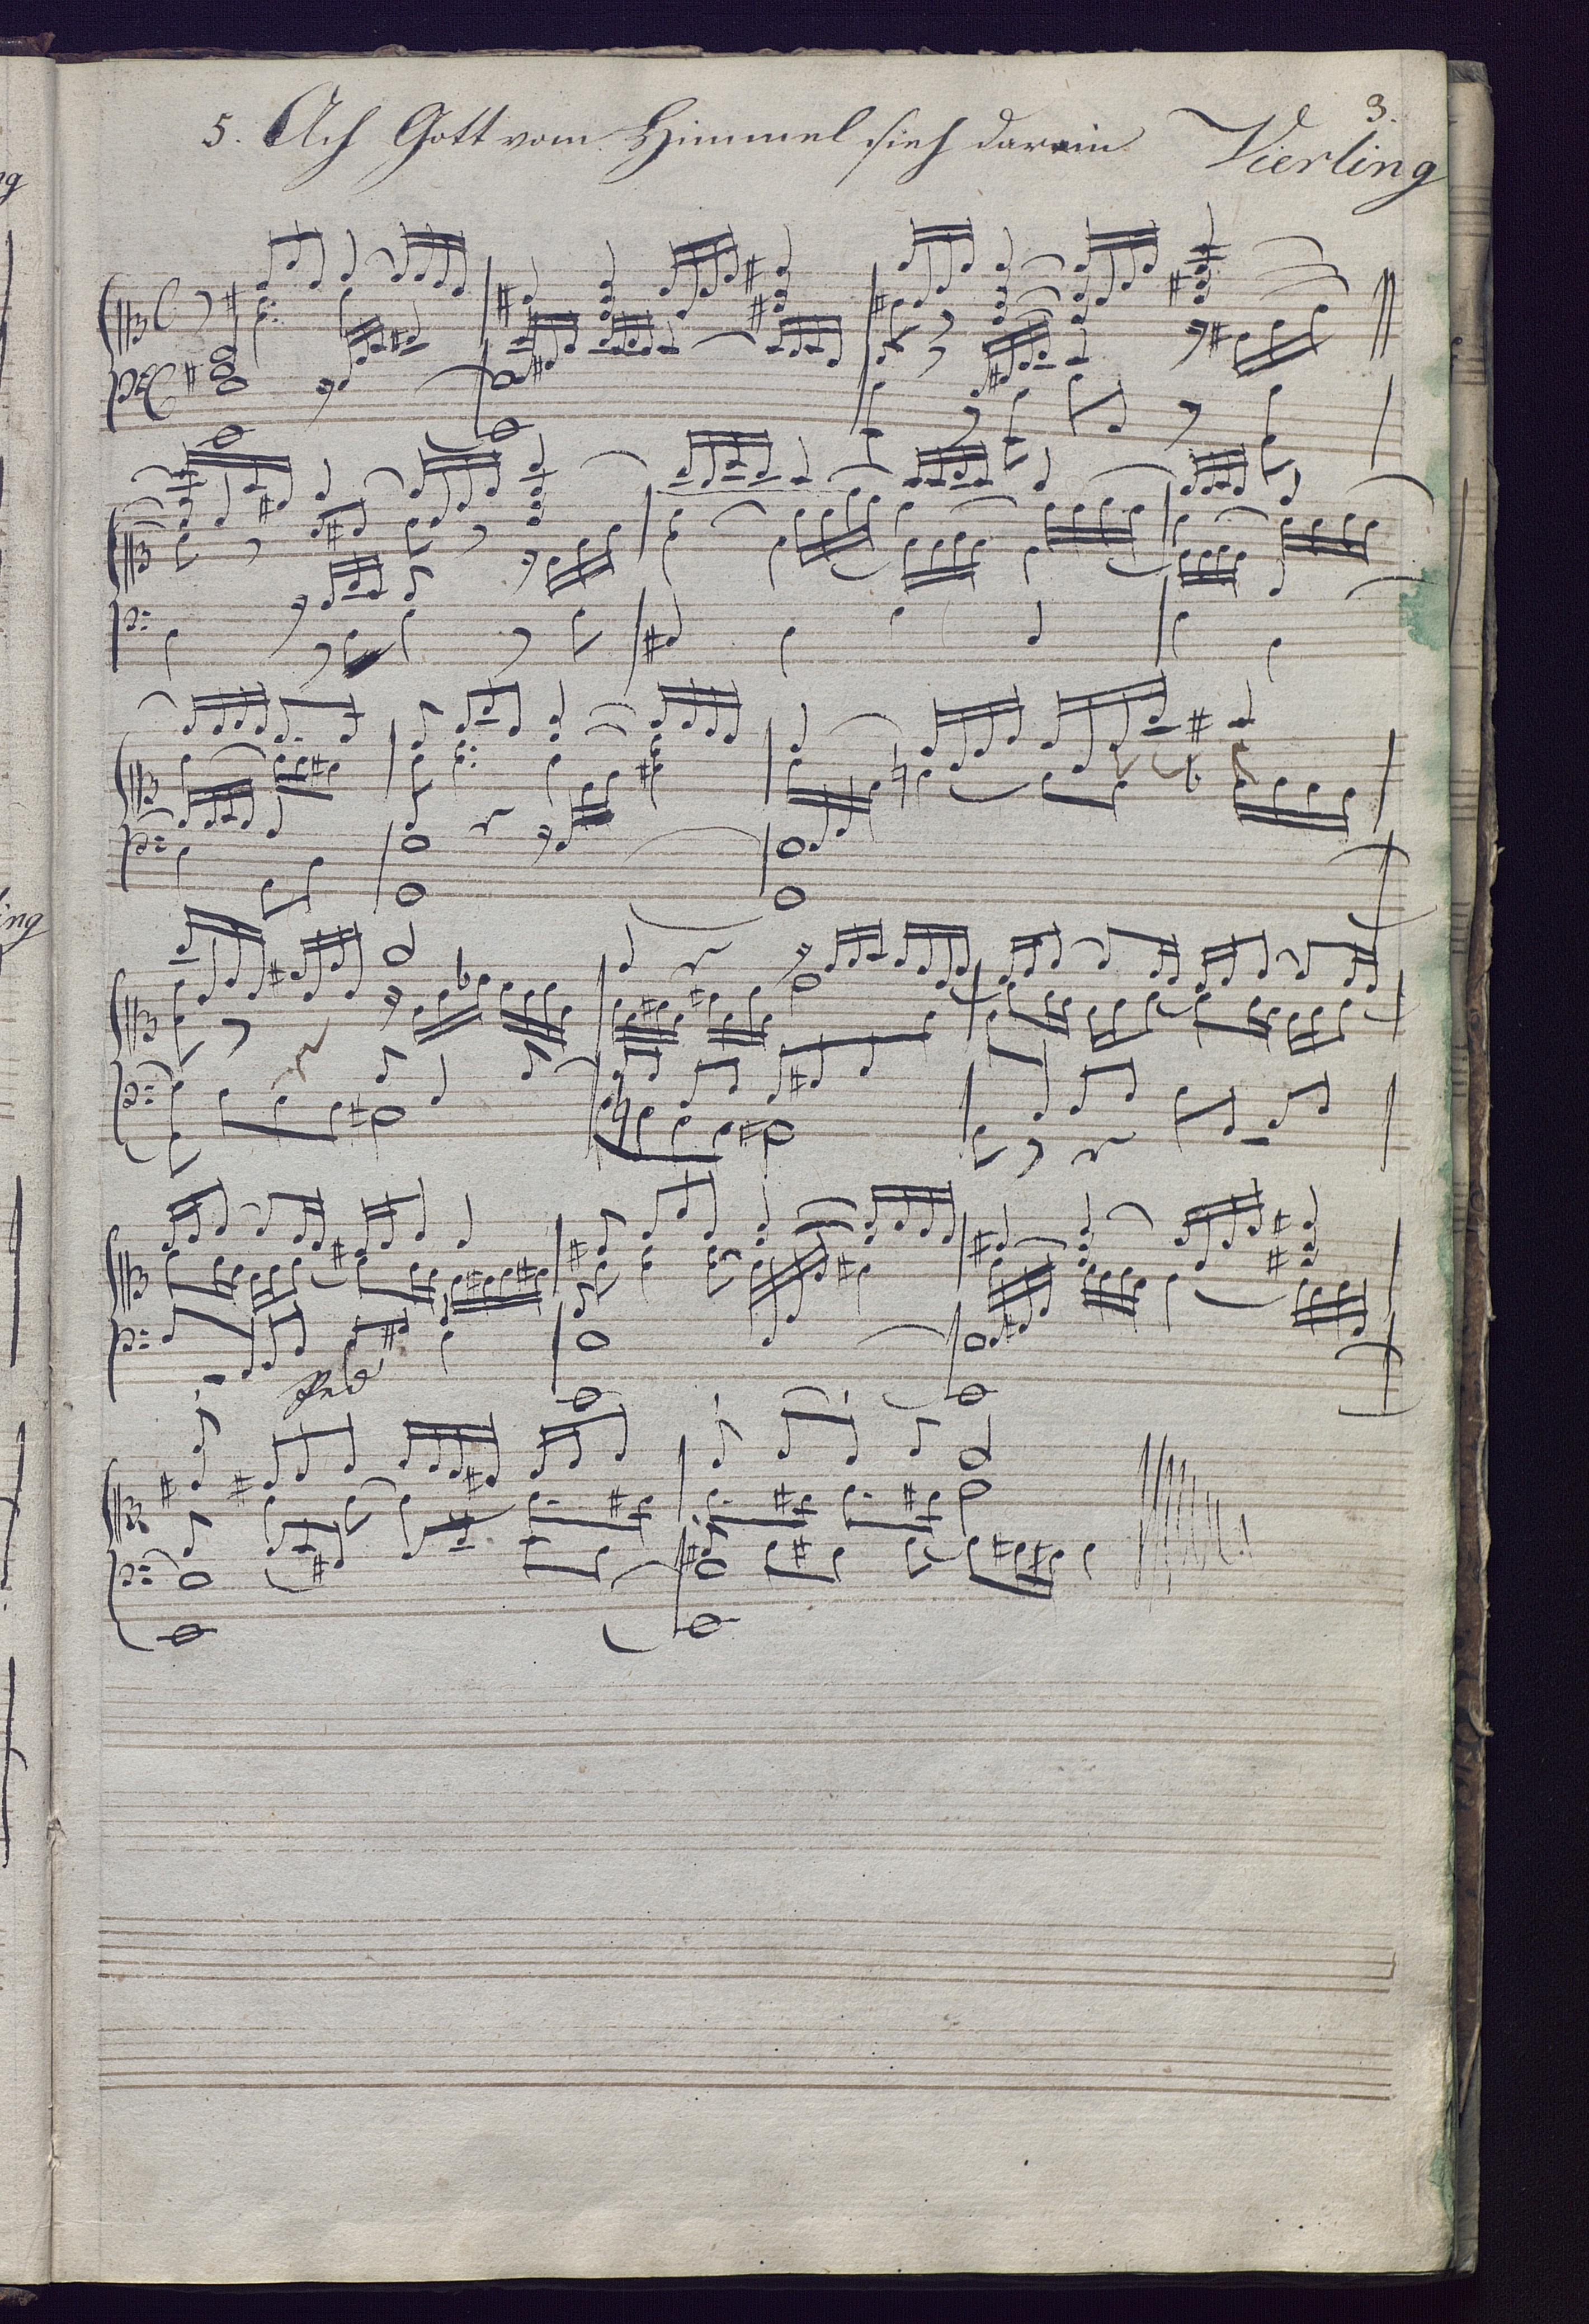 3.
5. Ach Gott vom Himmel sieh darein Vierling
Ped